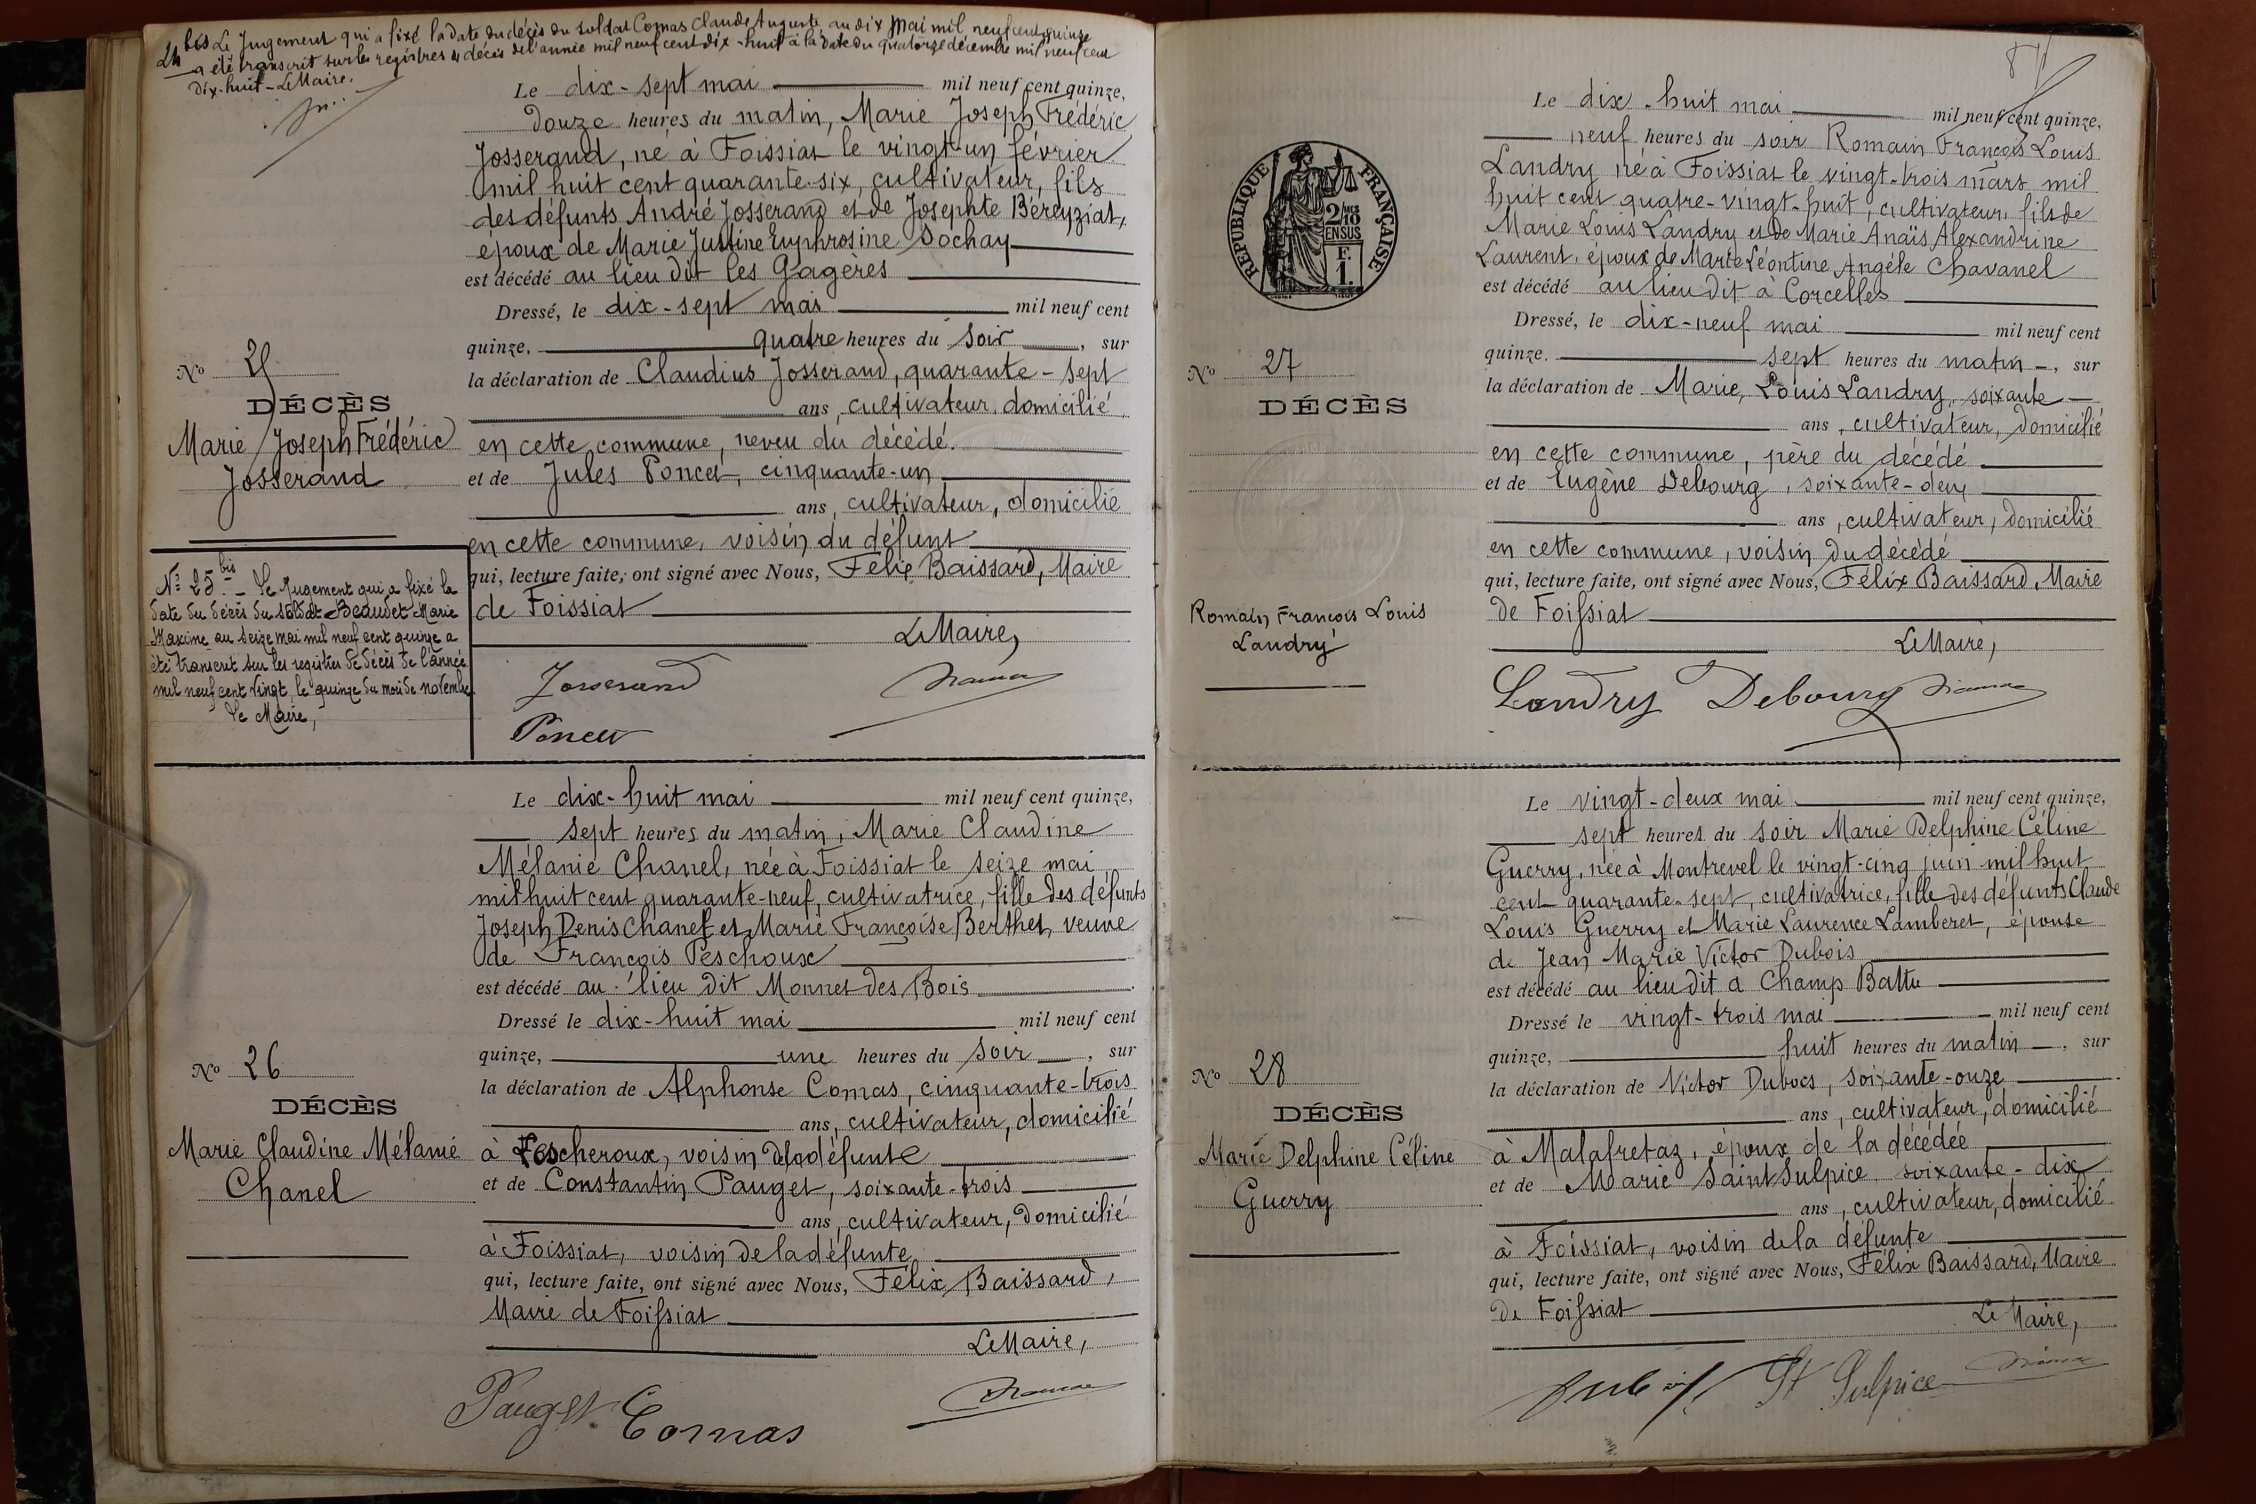 24 bis Le Jugement qui a fixé la date du décès du soldat Comas Claude Auguste au dix mai mil neuf cent quinze
a été transcrit sur les registres de décès de l'année mil neuf cent dix-huit à la date du quatorze décembre mil neuf cent
dix-huit - Le Maire.
Le dix-sept mai mil neuf cent quinze,
douze heures du matin, Marie Joseph Frédéric
Josserand, né à Foissiat le vingt-un février
mil huit cent quarante-six, cultivateur, fils
des défunts André Josserand et de Josephte Béreyziat,
époux de Marie Justine Euphrosine Sochay
est décédé au lieu dit les Gagères
Dressé, le dix-sept mai mil neuf cent
quinze, quatre heures du soir, sur
la déclaration de Claudius Josserand, quarante-sept
ans, cultivateur, domicilié
en cette commune, neveu du décédé.
et de Jules Poncet, cinquante-un
ans, cultivateur, domicilié
en cette commune, voisin du défunt
qui, lecture faite, ont signé avec Nous, Félix Baissard, Maire
de Foissiat
Le Maire,
Josserand
Poncet
No 25
DÉCÈS
Marie Joseph Frédéric
Josserand
No 25 bis - Le Jugement qui a fixé la
date du décès du soldat Beaudet Marie
Maxime au seize mai mil neuf cent quinze a
été transcrit sur les registres de décès de l'année
mil neuf cent vingt, le quinze du mois de novembre.
Le Maire,
Le dix-huit mai mil neuf cent quinze,
sept heures du matin, Marie Claudine
Mélanie Chanel, née à Foissiat le seize mai
mil huit cent quarante-neuf, cultivatrice, fille des défunts
Joseph Denis Chanel et Marie Françoise Berthet, veuve
de François Peschoux
est décédé au lieu dit Monnet des Bois
Dressé le dix-huit mai mil neuf cent
quinze, une heures du soir, sur
la déclaration de Alphonse Comas, cinquante-trois
ans, cultivateur, domicilié
à Lescheroux, voisin de la défunte
et de Constantin Pauget, soixante-trois
ans, cultivateur, domicilié
à Foissiat, voisin de la défunte
qui, lecture faite, ont signé avec Nous, Félix Baissard,
Maire de Foissiat
Le Maire,
Pauget Comas
No 26
DÉCÈS
Marie Claudine Mélanie
Chanel
RÉPUBLIQUE FRANÇAISE
2/10
EN SUS
F.
1.
Le dix-huit mai mil neuf cent quinze,
neuf heures du soir Romain François Louis
Landry né à Foissiat le vingt-trois mars mil
huit cent quatre-vingt-huit, cultivateur, fils de
Marie Louis Landry et de Marie Anaïs Alexandrine
Laurent, époux de Marie Léontine Angèle Chavanel
est décédé au lieu dit à Corcelles
Dressé, le dix-neuf mai mil neuf cent
quinze. sept heures du matin, sur
la déclaration de Marie, Louis Landry, soixante
ans, cultivateur, domicilié
en cette commune, père du décédé
et de Eugène Debourg, soixante-deux
ans, cultivateur, domicilié
en cette commune, voisin du décédé
qui, lecture faite, ont signé avec Nous, Félix Baissard, Maire
de Foissiat
Le Maire,
Landry Debourg
No 27
DÉCÈS
Romain François Louis
Landry
Le vingt-deux mai mil neuf cent quinze,
sept heures du soir Marie Delphine Céline
Guerry, née à Montrevel le vingt-cinq juin mil huit
cent quarante-sept, cultivatrice, fille des défunts Claude
Louis Guerry et Marie Laurence Lamberet, épouse
de Jean Marie Victor Dubois
est décédé au lieu dit à Champ Battu
Dressé le vingt-trois mai mil neuf cent
quinze, huit heures du matin, sur
la déclaration de Victor Dubois, soixante-onze
ans, cultivateur, domicilié
à Malafretaz, époux de la décédée
et de Marie Saint Sulpice soixante-dix
ans, cultivateur, domicilié
à Foissiat, voisin de la défunte
qui, lecture faite, ont signé avec Nous, Félix Baissard, Maire
de Foissiat
Le Maire,
Dubois St Sulpice
No 28
DÉCÈS
Marie Delphine Céline
Guerry